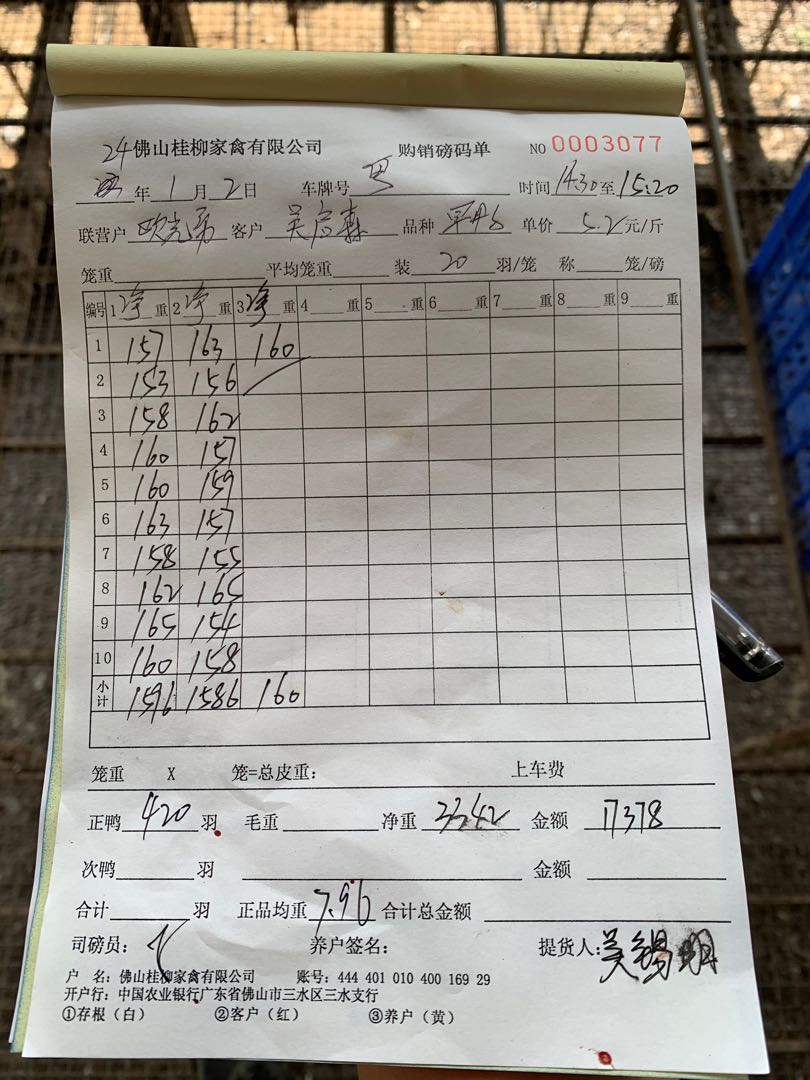 24佛山桂柳家禽有限公司 购销磅码单 NO 0003077
年1月2日 车牌号 时间14:30至15:20
联营户 客户 吴启森 品种 单价 5.2 元/斤
笼重 平均笼重 装 20 羽/笼 称 笼/磅
编号 1净重 2净重 3净重 4重 5重 6重 7重 8重 9重
1 157 163 160
2 153 156
3 158 162
4 160 157
5 160 159
6 163 157
7 158 155
8 162 165
9 165 154
10 160 158
小计 1596 1586 160
笼重 X 笼=总皮重: 上车费
正鸭 420 羽 毛重 净重 3342 金额 17378
次鸭 羽 金额
合计 羽 正品均重 7.96 合计总金额
司磅员: 养户签名: 提货人:吴锡明
户 名:佛山桂柳家禽有限公司 账号:444 401 010 400 169 29
开户行:中国农业银行广东省佛山市三水区三水支行
①存根(白) ②客户(红) ③养户(黄)